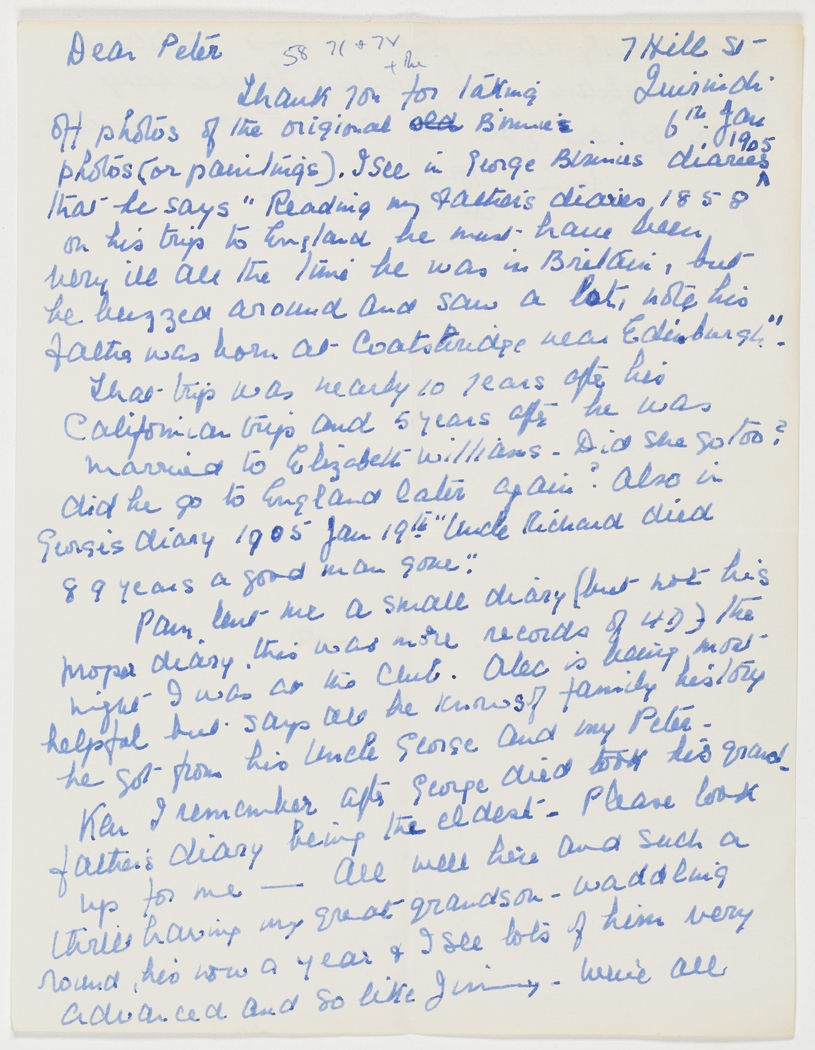 Dear Peter
7 Hill St
58 71 + 72
+ the
Quirindi
Thank you for taking
6th Jan
off photos of the original old Binnie
1905
photos (or paintings). I see in George Binnies diaries
that he says " Reading my Father's diaries 1858
on his trip to England he must have been
very ill all the time he was in Britain, but
he buzzed around and saw a lot, note his
father was born at Coatsbridge near Edinburgh".
That trip was nearly 10 years after his
Californian trip and 5 years after he was
married to Elizabeth Williams - Did she go too?
did he go to England later again? Also in
George's diary 1905 Jan 19th "Uncle Richard died
89 years a good man gone".
Pam lent me a small diary (but not his
proper diary, this was more records of HD) the
night I was at the Club. Alec is being most
helpful but says all he knows of family history
he got from his Uncle George and my Peter -
Ken I remember after George died took his grand
father's diary being the eldest - Please look
up for me — All well here and such a
thrill having my great grandson - waddling
round, his now a year & I see lots of him very
advanced and so like Jimmy - We're all